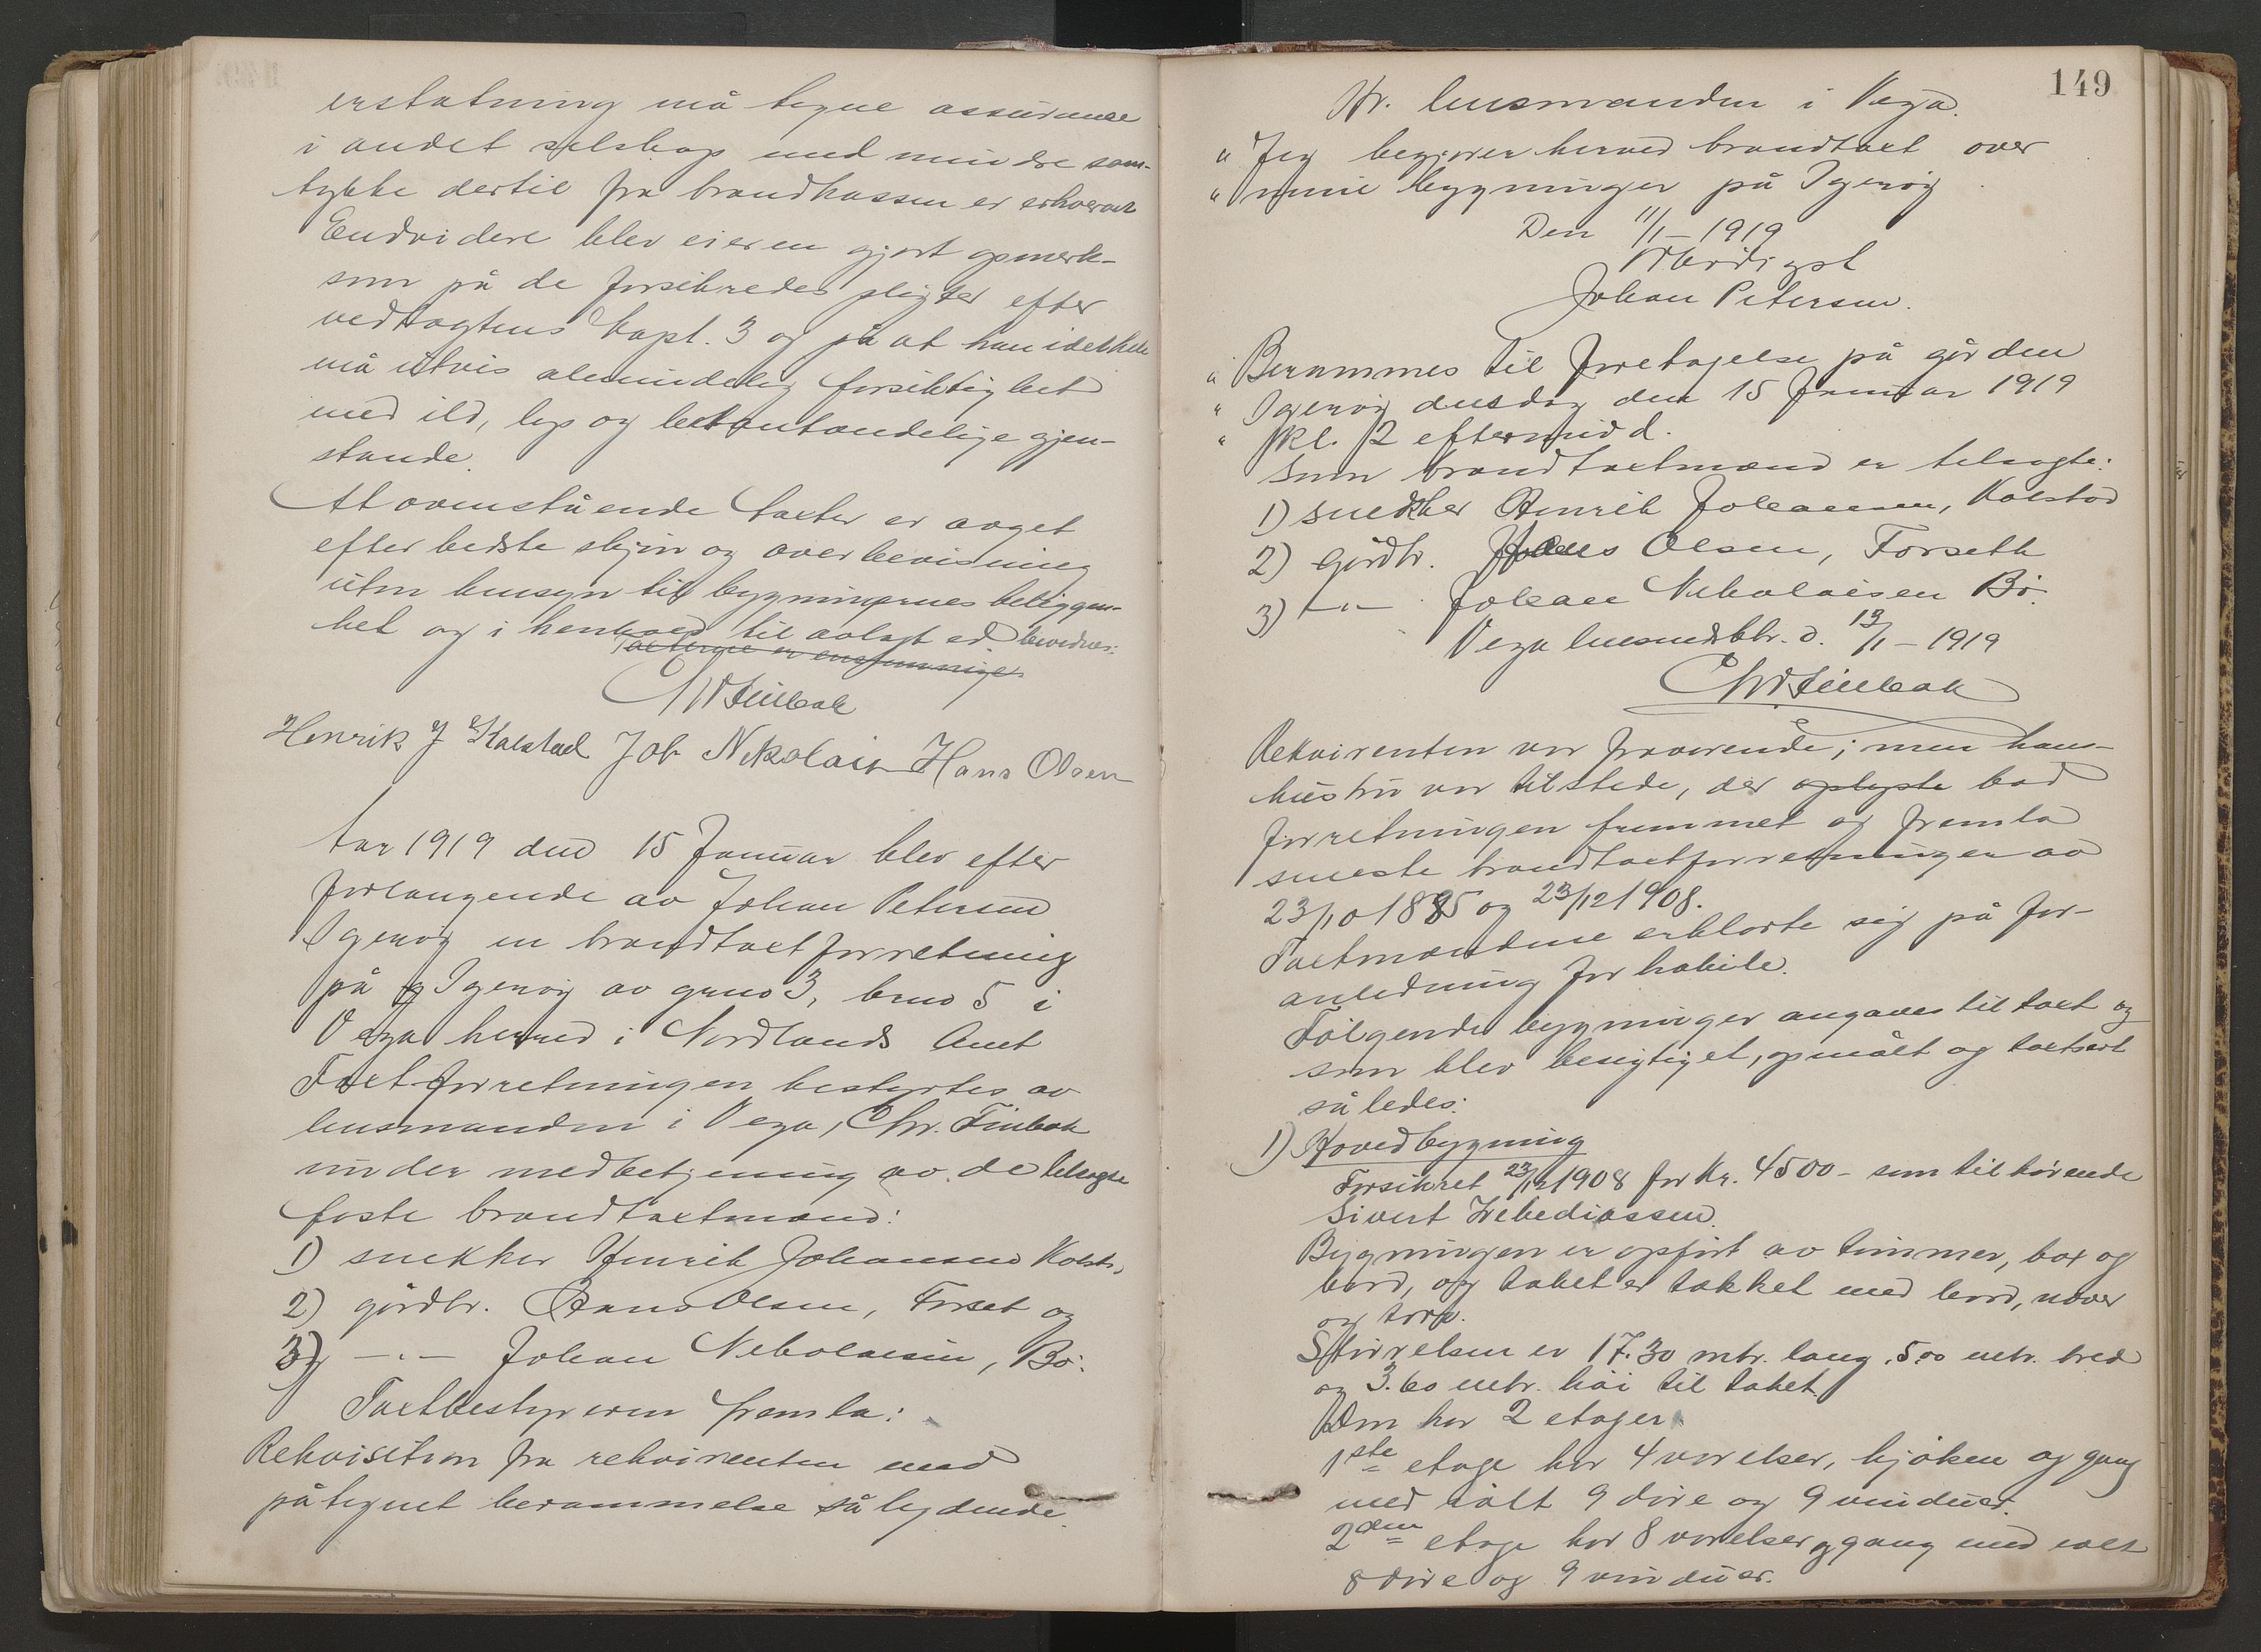 erstatning må tegne assurance
i andet selskap med mindre sam-
tykke dertil fra brandkassen er erhvervet
Endvidere blev eieren gjort opmerk-
som på de forsikredes pligter efter
vedtægtens kapt. 3 og på at han idethele
må utvis almindelig forsiktighet
med ild, lys og letantændelige gjen-
stande.
At ovenstående takster er avget
efter bedste skjøn og overbevisning
uten hensyn til bygningernes beliggen-
het og i henhold til avlagt ed bevidnes:
Taksterne er enstemmige
Chr Finbak
Henrik J Kalstad Joh Nikolaisen Hans Olsen
Aar 1919 den 15 Januar blev efter
forlangende av Johan Petersen
Igerøy en brandtakstforretning
på g Igerøy av gnno 3, bnno 5 i
Vega herred i Nordlands Amt
Takstforretningen bestyrtes av
lensmanden i Vega, Chr. Finbak
under medbetjening av de tilsagte
faste brandtakstmænd:
1) snekker Henrik Johansen Kolst.,
2) gårdbr. Hans Olsen, Forset og
3) —"— Johan Nikolaisen, Bø.
Takstbestyreren fremla:
Rekvisition fra rekvirenten med
påtegnet berammelse så lydende.
149
Hr. lensmanden i Vega.
" Jeg begjærer herved brandtakst over
" mine bygninger på Igerøy
Den 11/1 – 1919
Ærbødigst
Johan Petersen.
" Berammes til foretagelse på gården
" Igerøy onsdag den 15 Januar 1919
" kl. 12 eftermidd.
Som brandtakstmænd er tilsagte:
1) snekker Henrik Johansen, Kolstad
2) gårdbr. Hans Olsen, Forseth
3) —"— Johan Nikolaisen Bø.
Vega lensmdsktr. d. 13/1 – 1919
Chr Finbak
Rekvirenten var fraværende; men hans
hustru var tilstede, der oplyste bad
forretningen fremmet og fremla
sineste brandtakstforretninger av
23/10 1895 og 23/12 1908.
Takstmændene erklærte sig på for-
anledning for habile.
Følgende bygninger angaves til takst og
som blev besigtiget, opmålt og taksert
således:
1) Hovedbygning
Forsikret 23/12 1908 for Kr. 4500 – som tilhørende
Sivert Zebediassen.
Bygningen er opført av tømmer, box og
bord, og taket er tækket med bord, næver
og torv.
Størrelsen er 17.30 mtr. lang, 5.00 mtr. bred
og 3.60 mtr. høi til taket.
Den har 2 etager.
1ste etage har 4 værelser, kjøken og gang
med ialt 9 døre og 9 vinduer.
2den etage har 8 værelser og gang med ialt
8 døre og 9 vinduer.